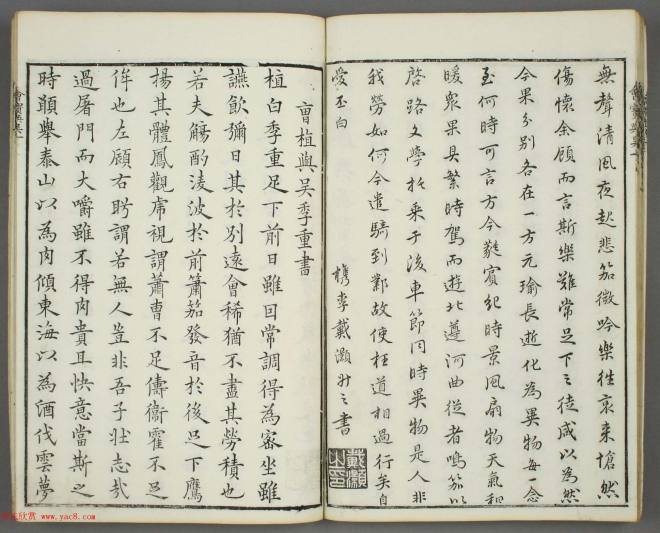 無聲清風夜起悲笳微吟樂徃哀来愴然
傷懷余顧而言斯樂難常足下之徒咸以為然
今果分别各在一方元瑜長逝化為異物每一念
至何時可言方今蕤賓紀時景風扇物天氣和
暖衆果具繁時駕而遊北遵河曲從者鳴笳以
啓路文學托乗于後車節同時異物是人非
我勞如何今遣騎到鄴故使枉道相過行矣自
愛丕白
檇李戴灝升之書
戴灝之印
曺植與吴季重書
植白季重足下前日雖因常調得為密坐雖
讌飲彌日其於别遠會稀猶不盡其勞積也
若夫觴酌淩波於前簫笳發音於後足下鷹
揚其體鳳觀虎視謂蕭曹不足儔衞霍不足
侔也左顧右眄謂若無人豈非吾子壮志㢤
過屠門而大嚼雖不得肉貴且快意當斯之
時願舉泰山以為肉傾東海以為酒伐雲夢
www.yac8.com